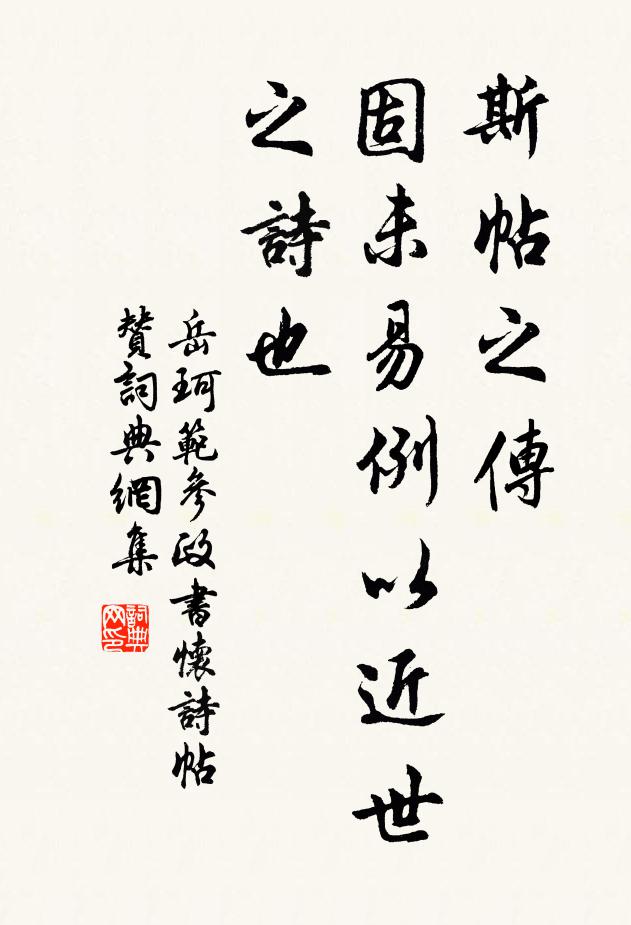 斯帖之傳
固未易例以近世
之詩也
岳珂範參政書懷詩帖
贊詞典網集
詞典网印